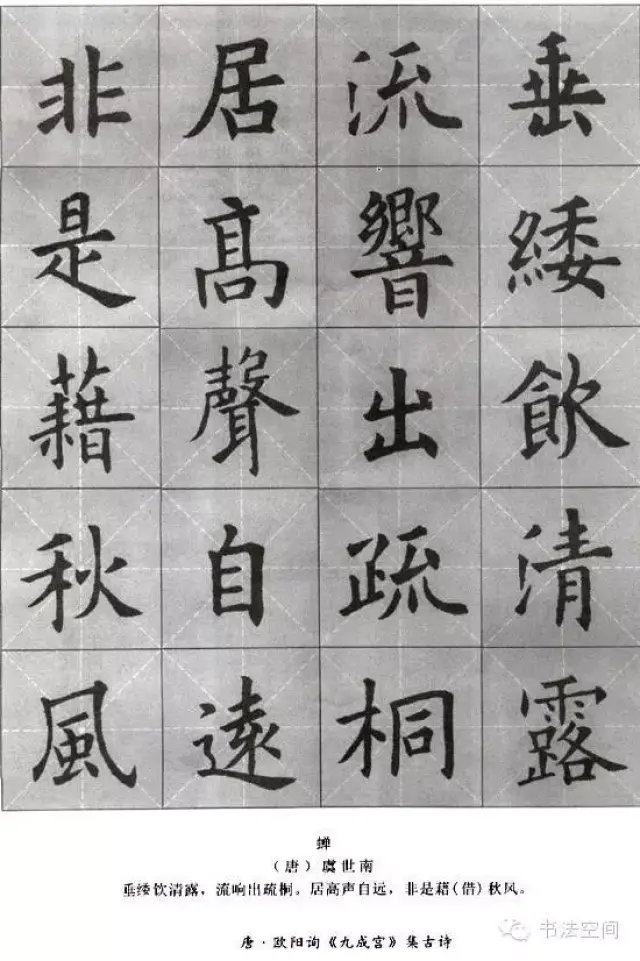 垂緌飲清露
流響出疏桐
居高聲自遠
非是藉秋風
蝉
（唐）虞世南
垂緌饮清露，流响出疏桐。居高声自远，非是藉（借）秋风。
唐·欧阳询《九成宫》集古诗
书法空间